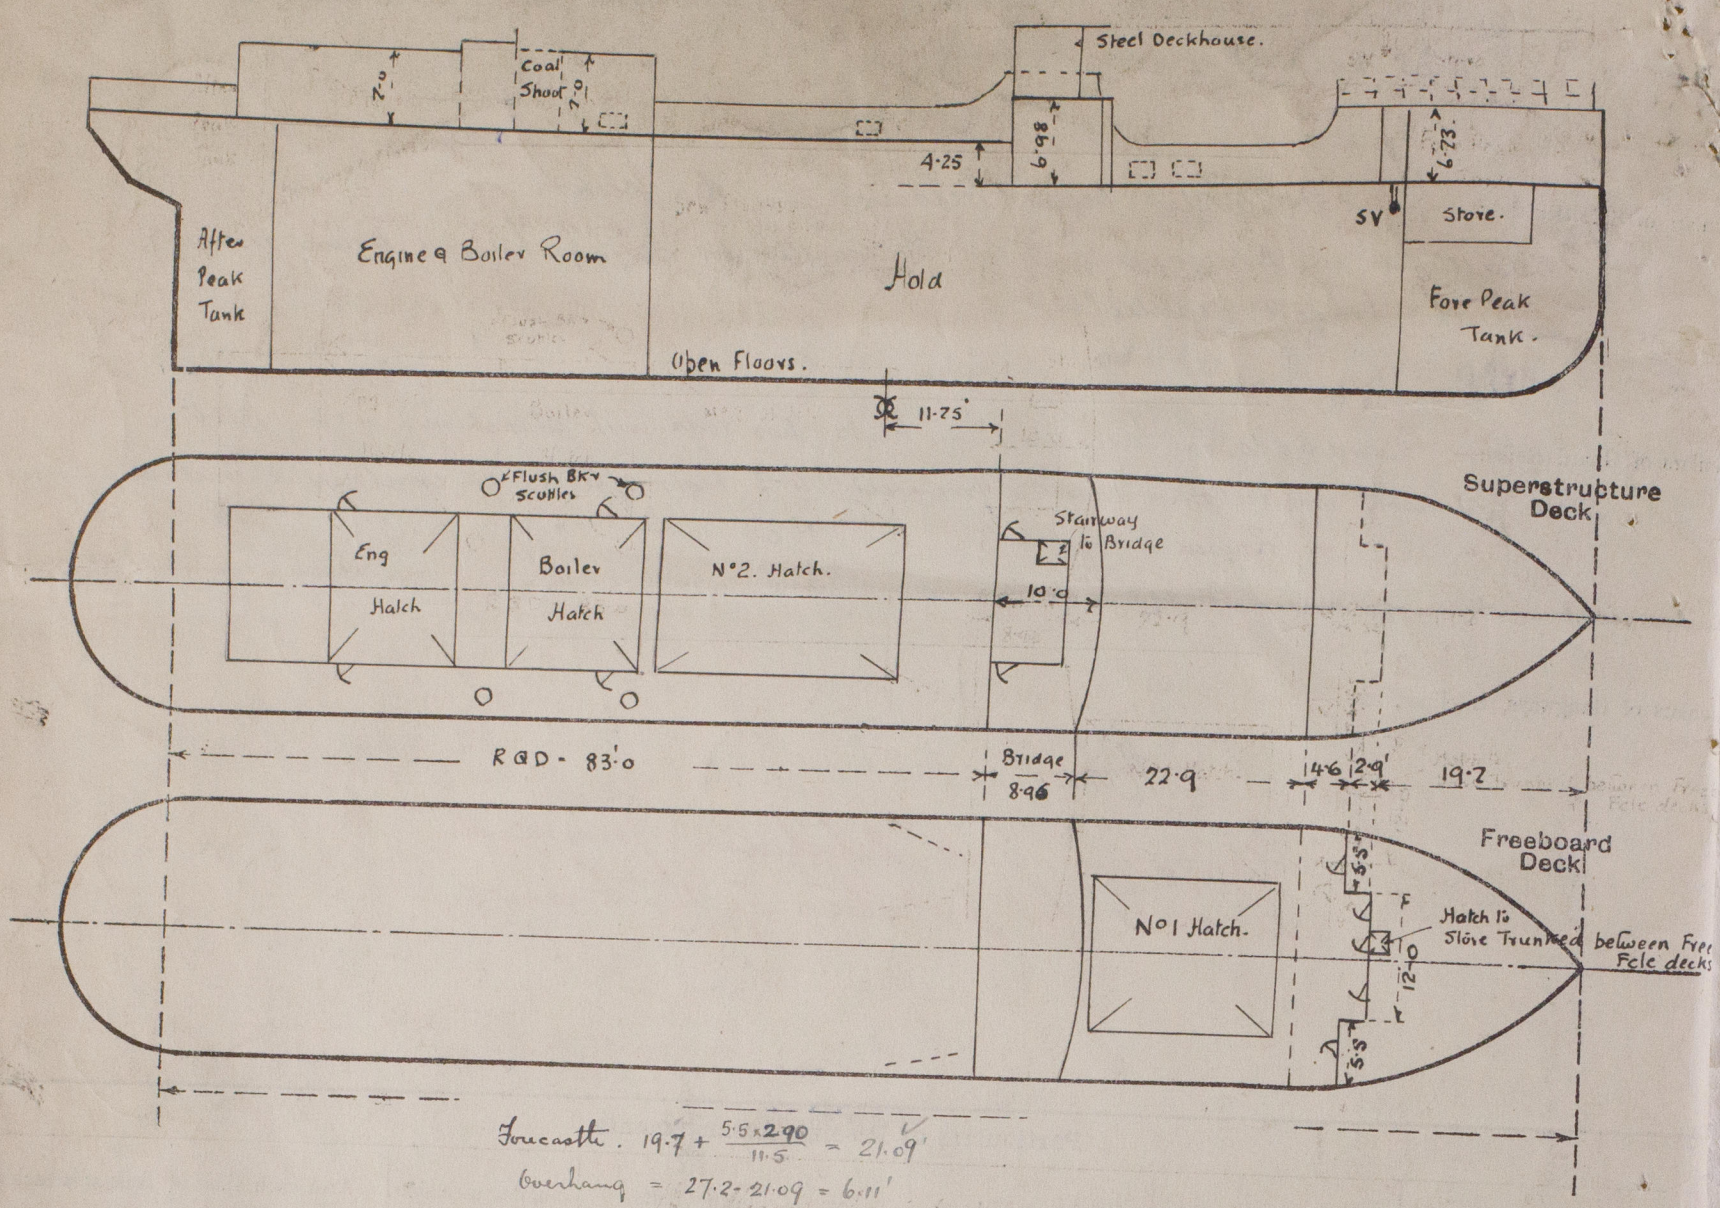 Steel Deckhouse.
Coal
Shoot
7·0
7·0
6·98
4·25
6·73
SV
Store.
After
Peak
Tank
Engine & Boiler Room
Hold
Fore Peak
Tank.
Open Floors.
11·25'
Superstructure
Deck
Flush Bkr
Scuttles
Stairway
to Bridge
Eng
Hatch
Boiler
Hatch
No 2. Hatch.
10·0
RQD - 83'·0
Bridge
8·96
22·9
4·6
2·9'
19·7
Freeboard
Deck
5·5
No 1 Hatch.
Hatch to
Store Trunked between Free
Fcle decks
12·0
5·5
Forecastle. 19.7 + 5.5 x 2.90
11.5
= 21.09'
Overhang = 27.2 - 21.09 = 6.11'